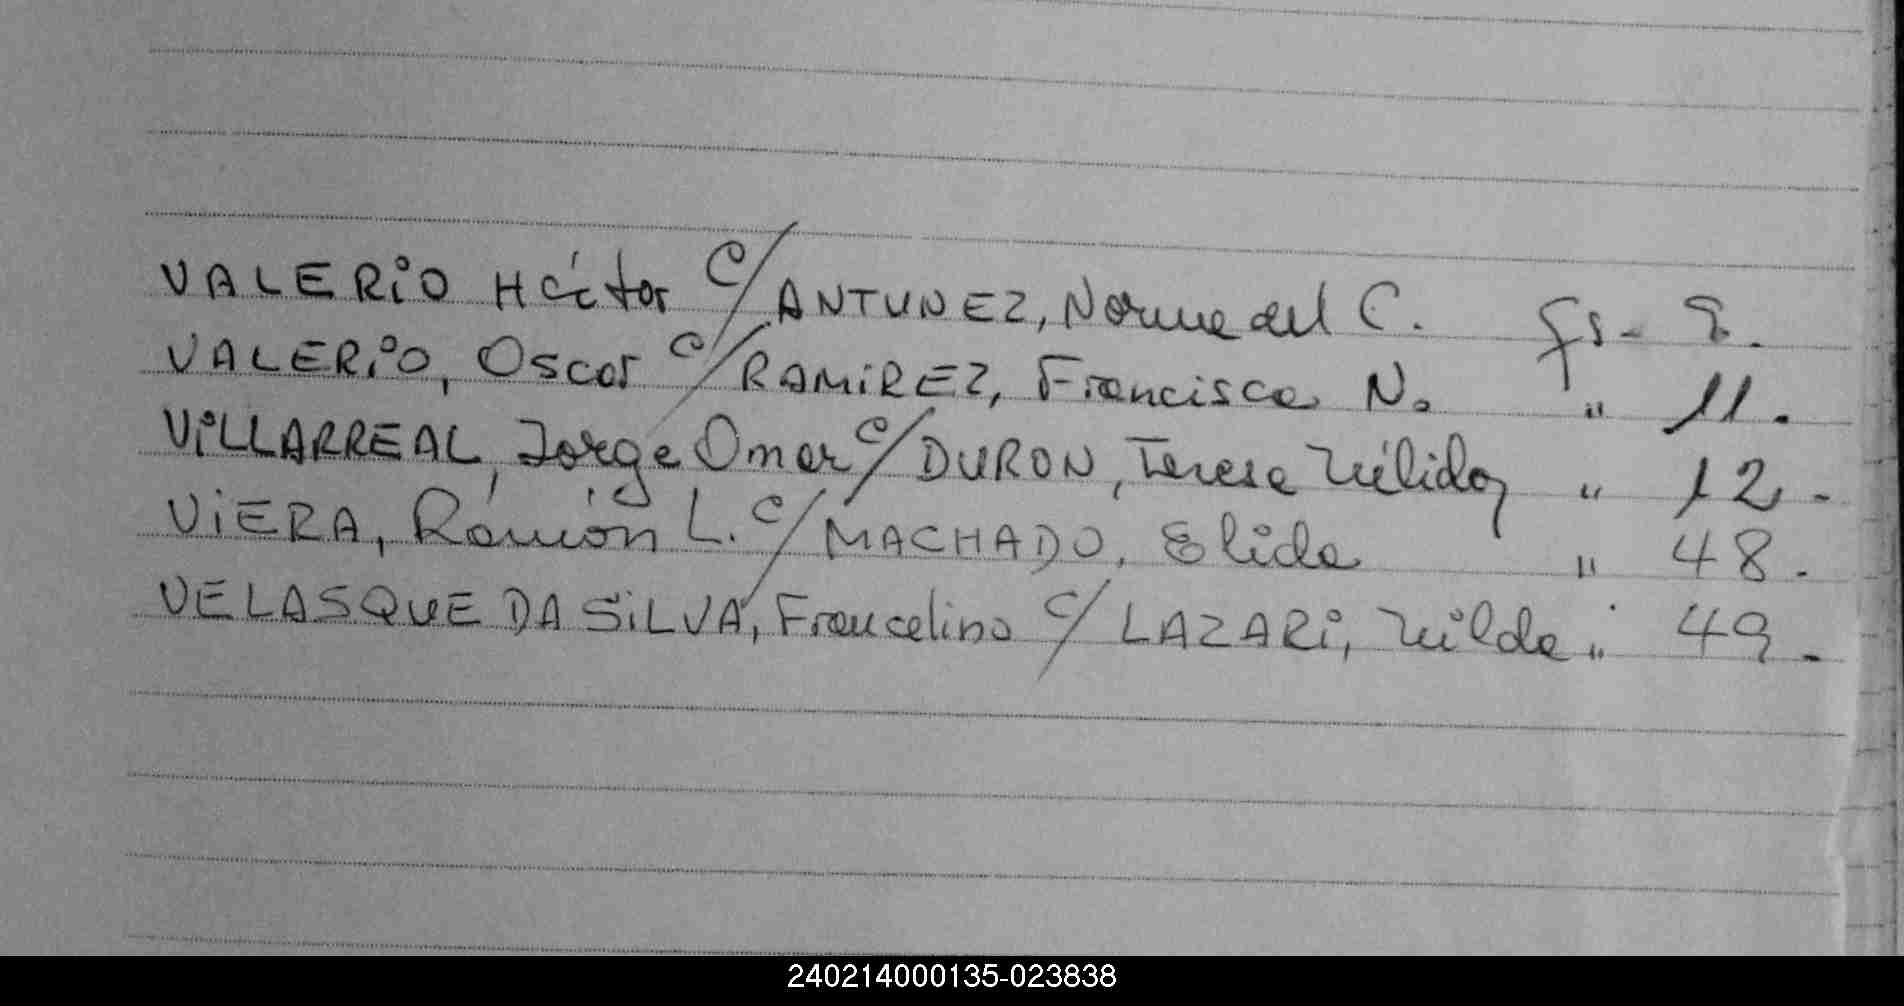 VALERIO Héctor c/ ANTUNEZ, Norma del C. fs- 8.
VALERIO, Oscar c/ RAMIREZ, Francisca N. " 11.
VILLARREAL, Jorge Omar c/ DURON, Teresa Nélida, " 12.
VIERA, Ramón L. c/ MACHADO, Elida " 48.
VELASQUE DA SILVA, Francelino c/ LAZARI, Nilda " 49.
240214000135-023838